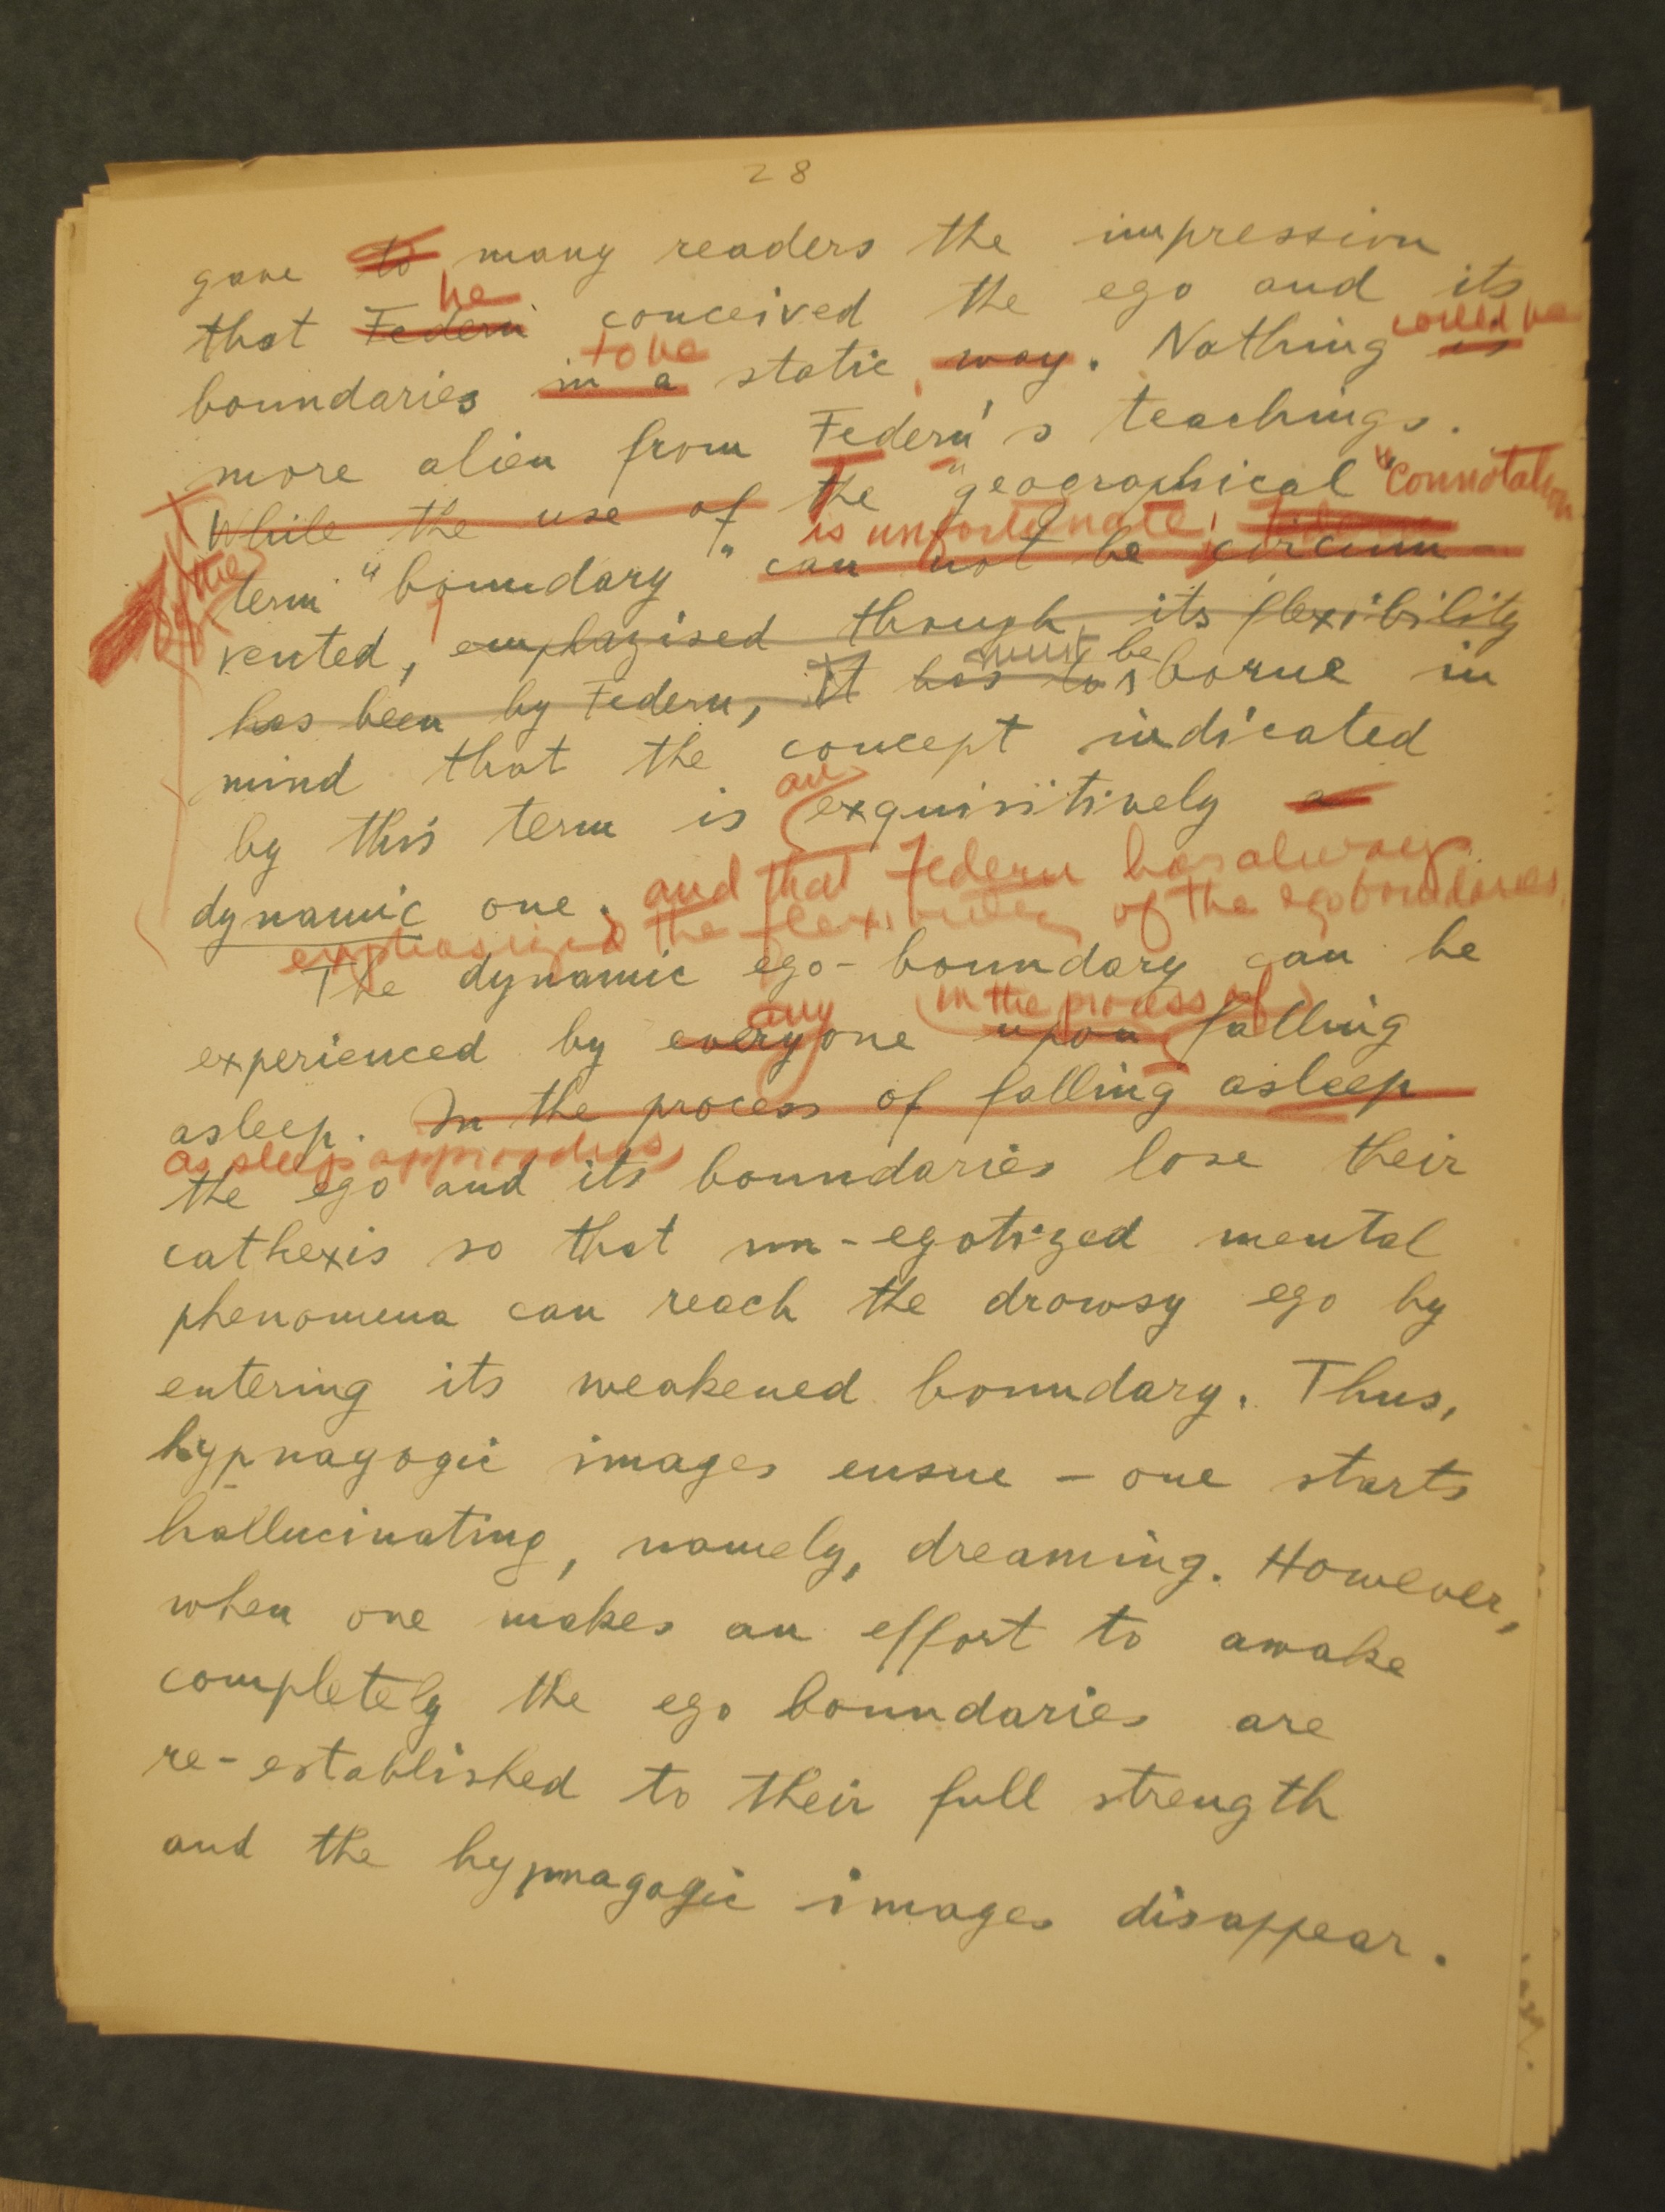 28
gave to many readers the impression
he
that Federn conceived the ego and its
to be could be
boundaries in a static way. Nothing is
more alien from Federn's teachings.
While the use of the "geographical" connotation
of the is unfortunate,
term "boundary" can not be circum-
vented, emphazised though its flexibility
must be
has been by Federn, it has to borne in
mind that the concept indicated
an
by this term is exquisitively a
and that Federn has always
dynamic one.
emphasized the flexibility of the ego boundaries.
The dynamic ego-boundary can be
any in the process of
experienced by everyone upon falling
asleep. In the process of falling asleep
as sleep approaches,
the ego and its boundaries lose their
cathexis so that un-egotized mental
phenomena can reach the drowsy ego by
entering its weakened boundary. Thus,
hypnagogic images ensue – one starts
hallucinating, namely, dreaming. However,
when one makes an effort to awake
completely the ego boundaries are
re-established to their full strength
and the hypnagogic images disappear.